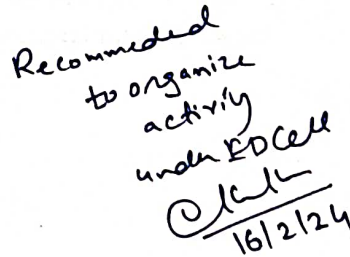 Recommeded
to organize
activity
under ED Cell
16/2/24